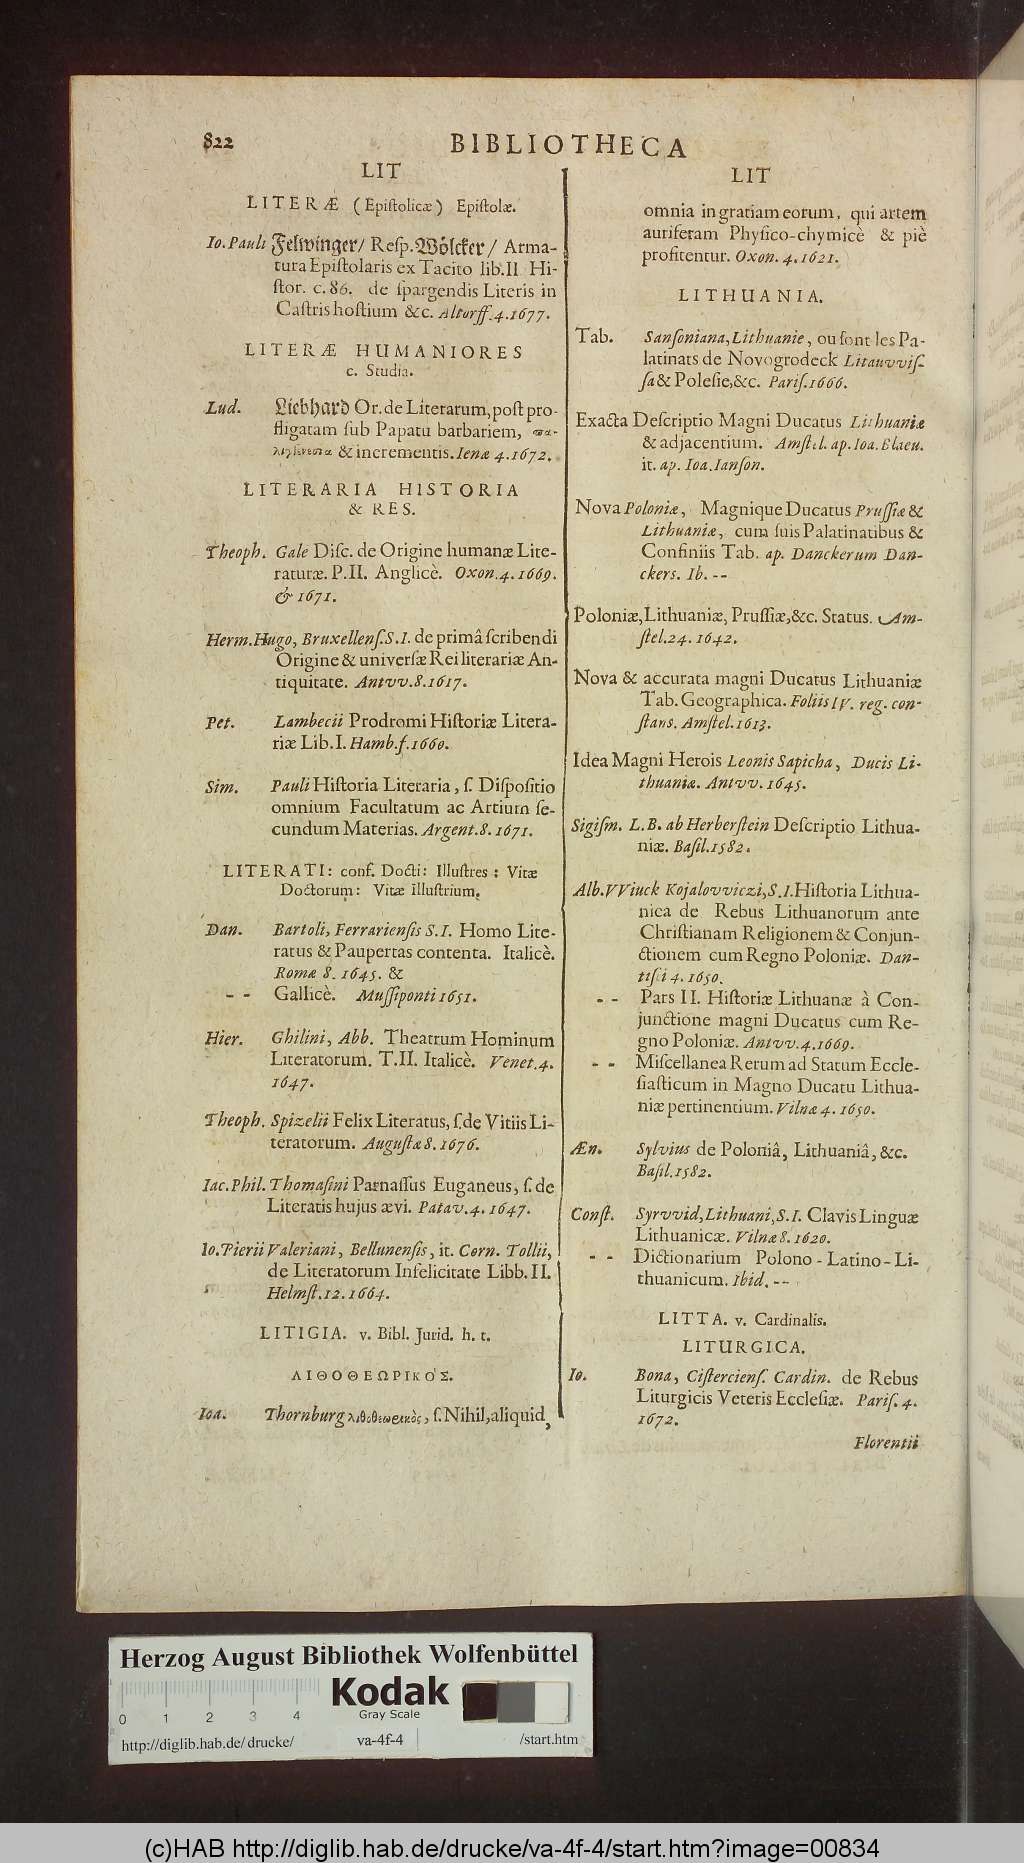 822
BIBLIOTHECA
LIT
LITERÆ (Epiſtolicæ) Epiſtolæ.
Io. Pauli Felwinger/ Reſp. Wölcker/ Arma-
tura Epiſtolaris ex Tacito lib. II Hi-
ſtor. c. 86. de ſpargendis Literis in
Caſtris hoſtium &c. Altorff. 4. 1677.
LITERÆ HUMANIORES
c. Studia.
Lud. Liebhard Or. de Literarum, poſt pro-
fligatam ſub Papatu barbariem, πα-
λιγγενεσία & incrementis. Ienæ 4. 1672.
LITERARIA HISTORIA
& RES.
Theoph. Gale Diſc. de Origine humanæ Lite-
raturæ. P. II. Anglicè. Oxon. 4. 1669.
& 1671.
Herm. Hugo, Bruxellenſ. S. I. de primâ ſcribendi
Origine & univerſæ Rei literariæ An-
tiquitate. Antvv. 8. 1617.
Pet. Lambecii Prodromi Hiſtoriæ Litera-
riæ Lib. I. Hamb. f. 1660.
Sim. Pauli Hiſtoria Literaria, ſ. Diſpoſitio
omnium Facultatum ac Artium ſe-
cundum Materias. Argent. 8. 1671.
LITERATI: conf. Docti: Illuſtres: Vitæ
Doctorum: Vitæ illuſtrium.
Dan. Bartoli, Ferrarienſis S. I. Homo Lite-
ratus & Paupertas contenta. Italicè.
Romæ 8. 1645. &
- - Gallicè. Muſſiponti 1651.
Hier. Ghilini, Abb. Theatrum Hominum
Literatorum. T. II. Italicè. Venet. 4.
1647.
Theoph. Spizelii Felix Literatus, ſ. de Vitiis Li-
teratorum. Auguſtæ 8. 1676.
Iac. Phil. Thomaſini Parnaſſus Euganeus, ſ. de
Literatis hujus ævi. Patav. 4. 1647.
Io. Pierii Valeriani, Bellunenſis, it. Corn. Tollii,
de Literatorum Infelicitate Libb. II.
Helmſt. 12. 1664.
LITIGIA. v. Bibl. Jurid. h. t.
ΛΙΘΟΘΕΩΡΙΚΟΣ.
Ioa. Thornburg λιθοθεωρικὸς, ſ. Nihil, aliquid,
LIT
omnia in gratiam eorum, qui artem
auriferam Phyſico-chymicè & piè
profitentur. Oxon. 4. 1621.
LITHUANIA.
Tab. Sanſoniana, Lithuanie, ou ſont les Pa-
latinats de Novogrodeck Litauvviſ-
ſa & Poleſie, &c. Pariſ. 1666.
Exacta Deſcriptio Magni Ducatus Lithuaniæ
& adjacentium. Amſtel. ap. Ioa. Blaeu.
it. ap. Ioa. Ianſon.
Nova Poloniæ, Magnique Ducatus Pruſſiæ &
Lithuaniæ, cum ſuis Palatinatibus &
Confiniis Tab. ap. Danckerum Dan-
ckers. Ib. --
Poloniæ, Lithuaniæ, Pruſſiæ, &c. Status. Am-
ſtel. 24. 1642.
Nova & accurata magni Ducatus Lithuaniæ
Tab. Geographica. Foliis IV. reg. con-
ſtans. Amſtel. 1613.
Idea Magni Herois Leonis Sapicha, Ducis Li-
thuaniæ. Antvv. 1645.
Sigiſm. L. B. ab Herberſtein Deſcriptio Lithua-
niæ. Baſil. 1582.
Alb. VViuck Kojalovviczi, S. I. Hiſtoria Lithua-
nica de Rebus Lithuanorum ante
Chriſtianam Religionem & Conjun-
ctionem cum Regno Poloniæ. Dan-
tiſci 4. 1650.
- - Pars II. Hiſtoriæ Lithuanæ à Con-
junctione magni Ducatus cum Re-
gno Poloniæ. Antvv. 4. 1669.
- - Miſcellanea Rerum ad Statum Eccle-
ſiaſticum in Magno Ducatu Lithua-
niæ pertinentium. Vilnæ 4. 1650.
Æn. Sylvius de Poloniâ, Lithuaniâ, &c.
Baſil. 1582.
Conſt. Syrvvid, Lithuani, S. I. Clavis Linguæ
Lithuanicæ. Vilnæ 8. 1620.
- - Dictionarium Polono-Latino-Li-
thuanicum. Ibid. --
LITTA. v. Cardinalis.
LITURGICA.
Io. Bona, Ciſtercienſ. Cardin. de Rebus
Liturgicis Veteris Eccleſiæ. Pariſ. 4.
1672.
Florentii
Herzog August Bibliothek Wolfenbüttel
Kodak
Gray Scale
0 1 2 3 4
http://diglib.hab.de/drucke/ va-4f-4 /start.htm
(c)HAB http://diglib.hab.de/drucke/va-4f-4/start.htm?image=00834